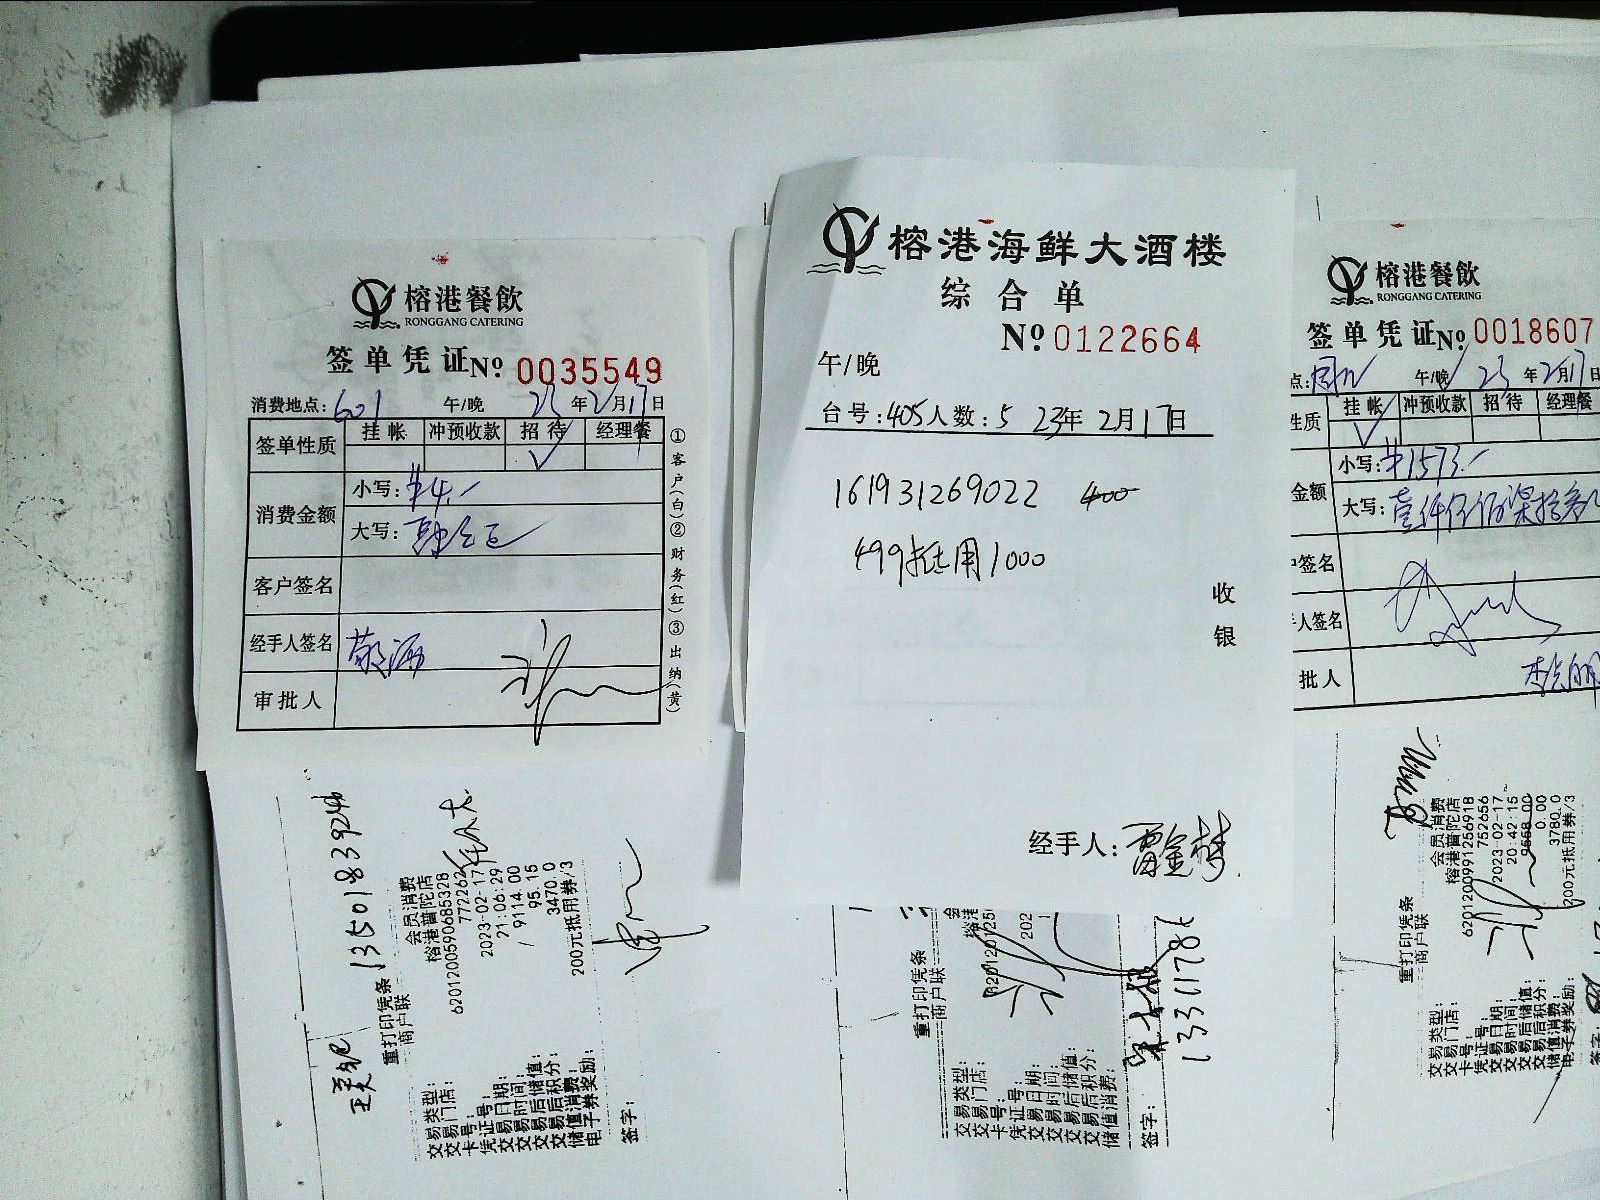 榕港餐飲
RONGGANG CATERING
签单凭证 № 0035549
消费地点: 601 午/晚 23年2月17日
签单性质 挂帐 冲预收款 招待 经理餐
√
消费金额 小写: ¥4.-
大写:
客户签名
经手人签名
审批人
①客户(白)②财务(红)③出纳(黄)
榕港海鲜大酒楼
综合单
№ 0122664
午/晚
台号: 405 人数: 5 23年 2月17日
161931269022 400
499抵用1000
收银
经手人:
榕港餐飲
RONGGANG CATERING
签单凭证 № 0018607
点: 午/晚 23年2月17日
性质 挂帐 冲预收款 招待 经理餐
√
金额 小写: ¥1573.-
大写: 壹仟伍佰柒拾叁
户签名
手人签名
批人
13501839244
重打印凭条
商户联
交易类型: 会员消费
交易门店: 榕港普陀店
卡号: 6201200590685328
凭证号: 772262
交易日期: 2023-02-17
交易时间: 21:06:29
交易后储值: 9114.00
交易后积分: 95.15
储值消费: 3470.0
电子券奖励: 200元抵用券/3
签字:
重打印凭条
商户联
交易类型:
交易门店:
卡号:
凭证号:
交易日期:
交易时间:
交易后储值:
交易后积分:
储值消费:
签字:
重打印凭条
商户联
交易类型: 会员消费
交易门店: 榕港普陀店
卡号: 6201200991256918
凭证号: 752656
交易日期: 2023-02-17
交易时间: 20:42:15
交易后储值: 9558.00
交易后积分: 0.00
储值消费: 3780.0
电子券奖励: 200元抵用券/3
签字: